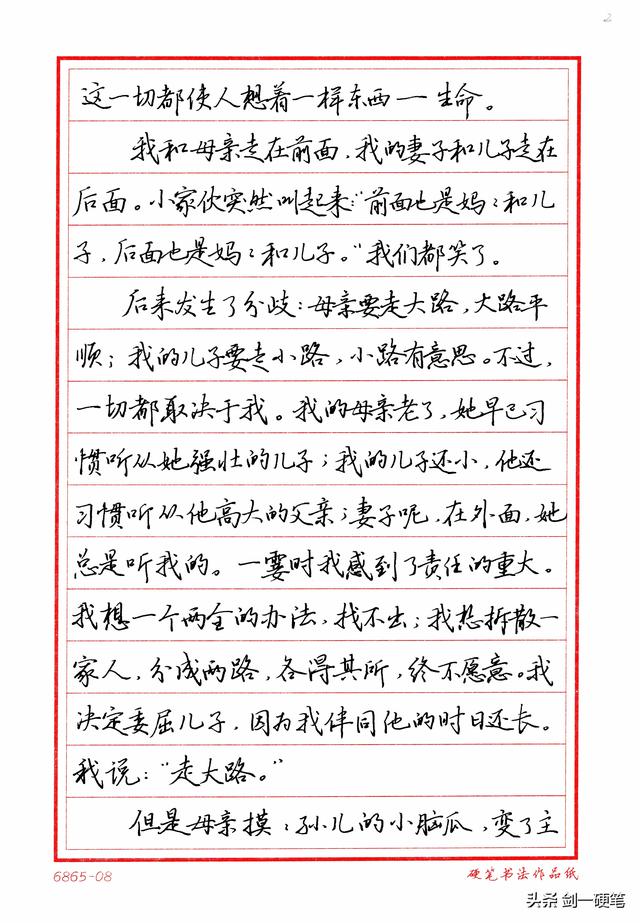 2
这一切都使人想着一样东西一生命。
我和母亲走在前面，我的妻子和儿子走在
后面。小家伙突然叫起来：“前面也是妈：和儿
子，后面也是妈：和儿子。”我们都笑了。
后来发生了分歧：母亲要走大路，大路平
顺；我的儿子要走小路，小路有意思。不过，
一切都取决于我。我的母亲老了，她早已习
惯听从她强壮的儿子；我的儿子还小，他还
习惯听从他高大的父亲；妻子呢，在外面，她
总是听我的。一霎时我感到了责任的重大。
我想一个两全的办法，找不出；我想拆散一
家人，分成两路，各得其所，终不愿意。我
决定委屈儿子，因为我伴同他的时日还长。
我说：“走大路。”
但是母亲摸：孙儿的小脑瓜，变了主
6865-08 硬笔书法作品纸
头条 剑一硬笔